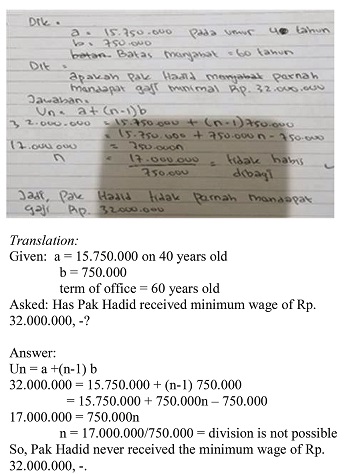 Dik :
a = 15.750.000 pada umur 40 tahun
b = 750.000
batan Batas menjabat = 60 tahun
Dit :
apakah Pak Hadid menjabat pernah
mendapat gaji minimal Rp. 32.000.000
Jawaban:
Un = a + (n-1) b
32.000.000 = 15.750.000 + (n-1) 750.000
= 15.750.000 + 750.000n - 750.000
17.000.000 = 750.000n
n = 17.000.000/750.000 = tidak habis
dibagi
Jadi, Pak Hadid tidak pernah mendapat
gaji Rp. 32.000.000
Translation:
Given: a = 15.750.000 on 40 years old
b = 750.000
term of office = 60 years old
Asked: Has Pak Hadid received minimum wage of Rp.
32.000.000, -?
Answer:
Un = a +(n-1) b
32.000.000 = 15.750.000 + (n-1) 750.000
= 15.750.000 + 750.000n – 750.000
17.000.000 = 750.000n
n = 17.000.000/750.000 = division is not possible
So, Pak Hadid never received the minimum wage of Rp.
32.000.000, -.